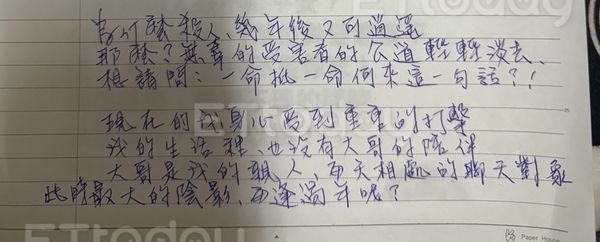 為什麼殺人、幾年後又可逍遙
那麼？無辜的受害者的公道輕輕淡去、
想請問：一命抵一命何來這一句話？！
現在的我身心受到重重的打擊
我的生活裡、也沒有大哥的陪伴
大哥是我的親人、每天相處的聊天對象
此時最大的陰影、再逢過年呢？
ETtoday
ETtoday
25
Paper House